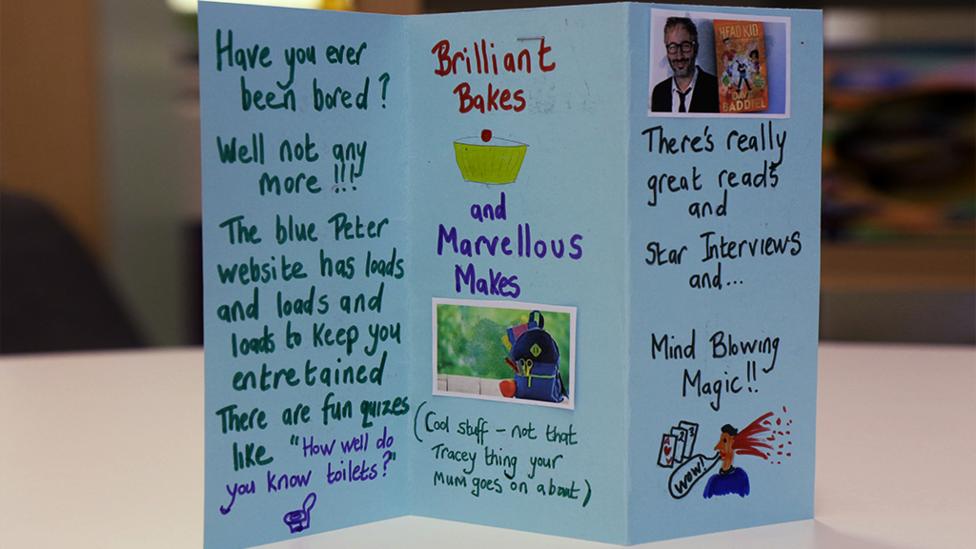 Have you ever
been bored?
Well not any
more!!!
The blue Peter
website has loads
and loads and
loads to keep you
entretained
There are fun quizes
like "How well do
you know toilets?"
Brilliant
Bakes
and
Marvellous
Makes
(Cool stuff - not that
Tracey thing your
Mum goes on about)
HEAD KID
DAVID
BADDIEL
There's really
great reads
and
Star Interviews
and...
Mind Blowing
Magic!!
2
3
WOW!